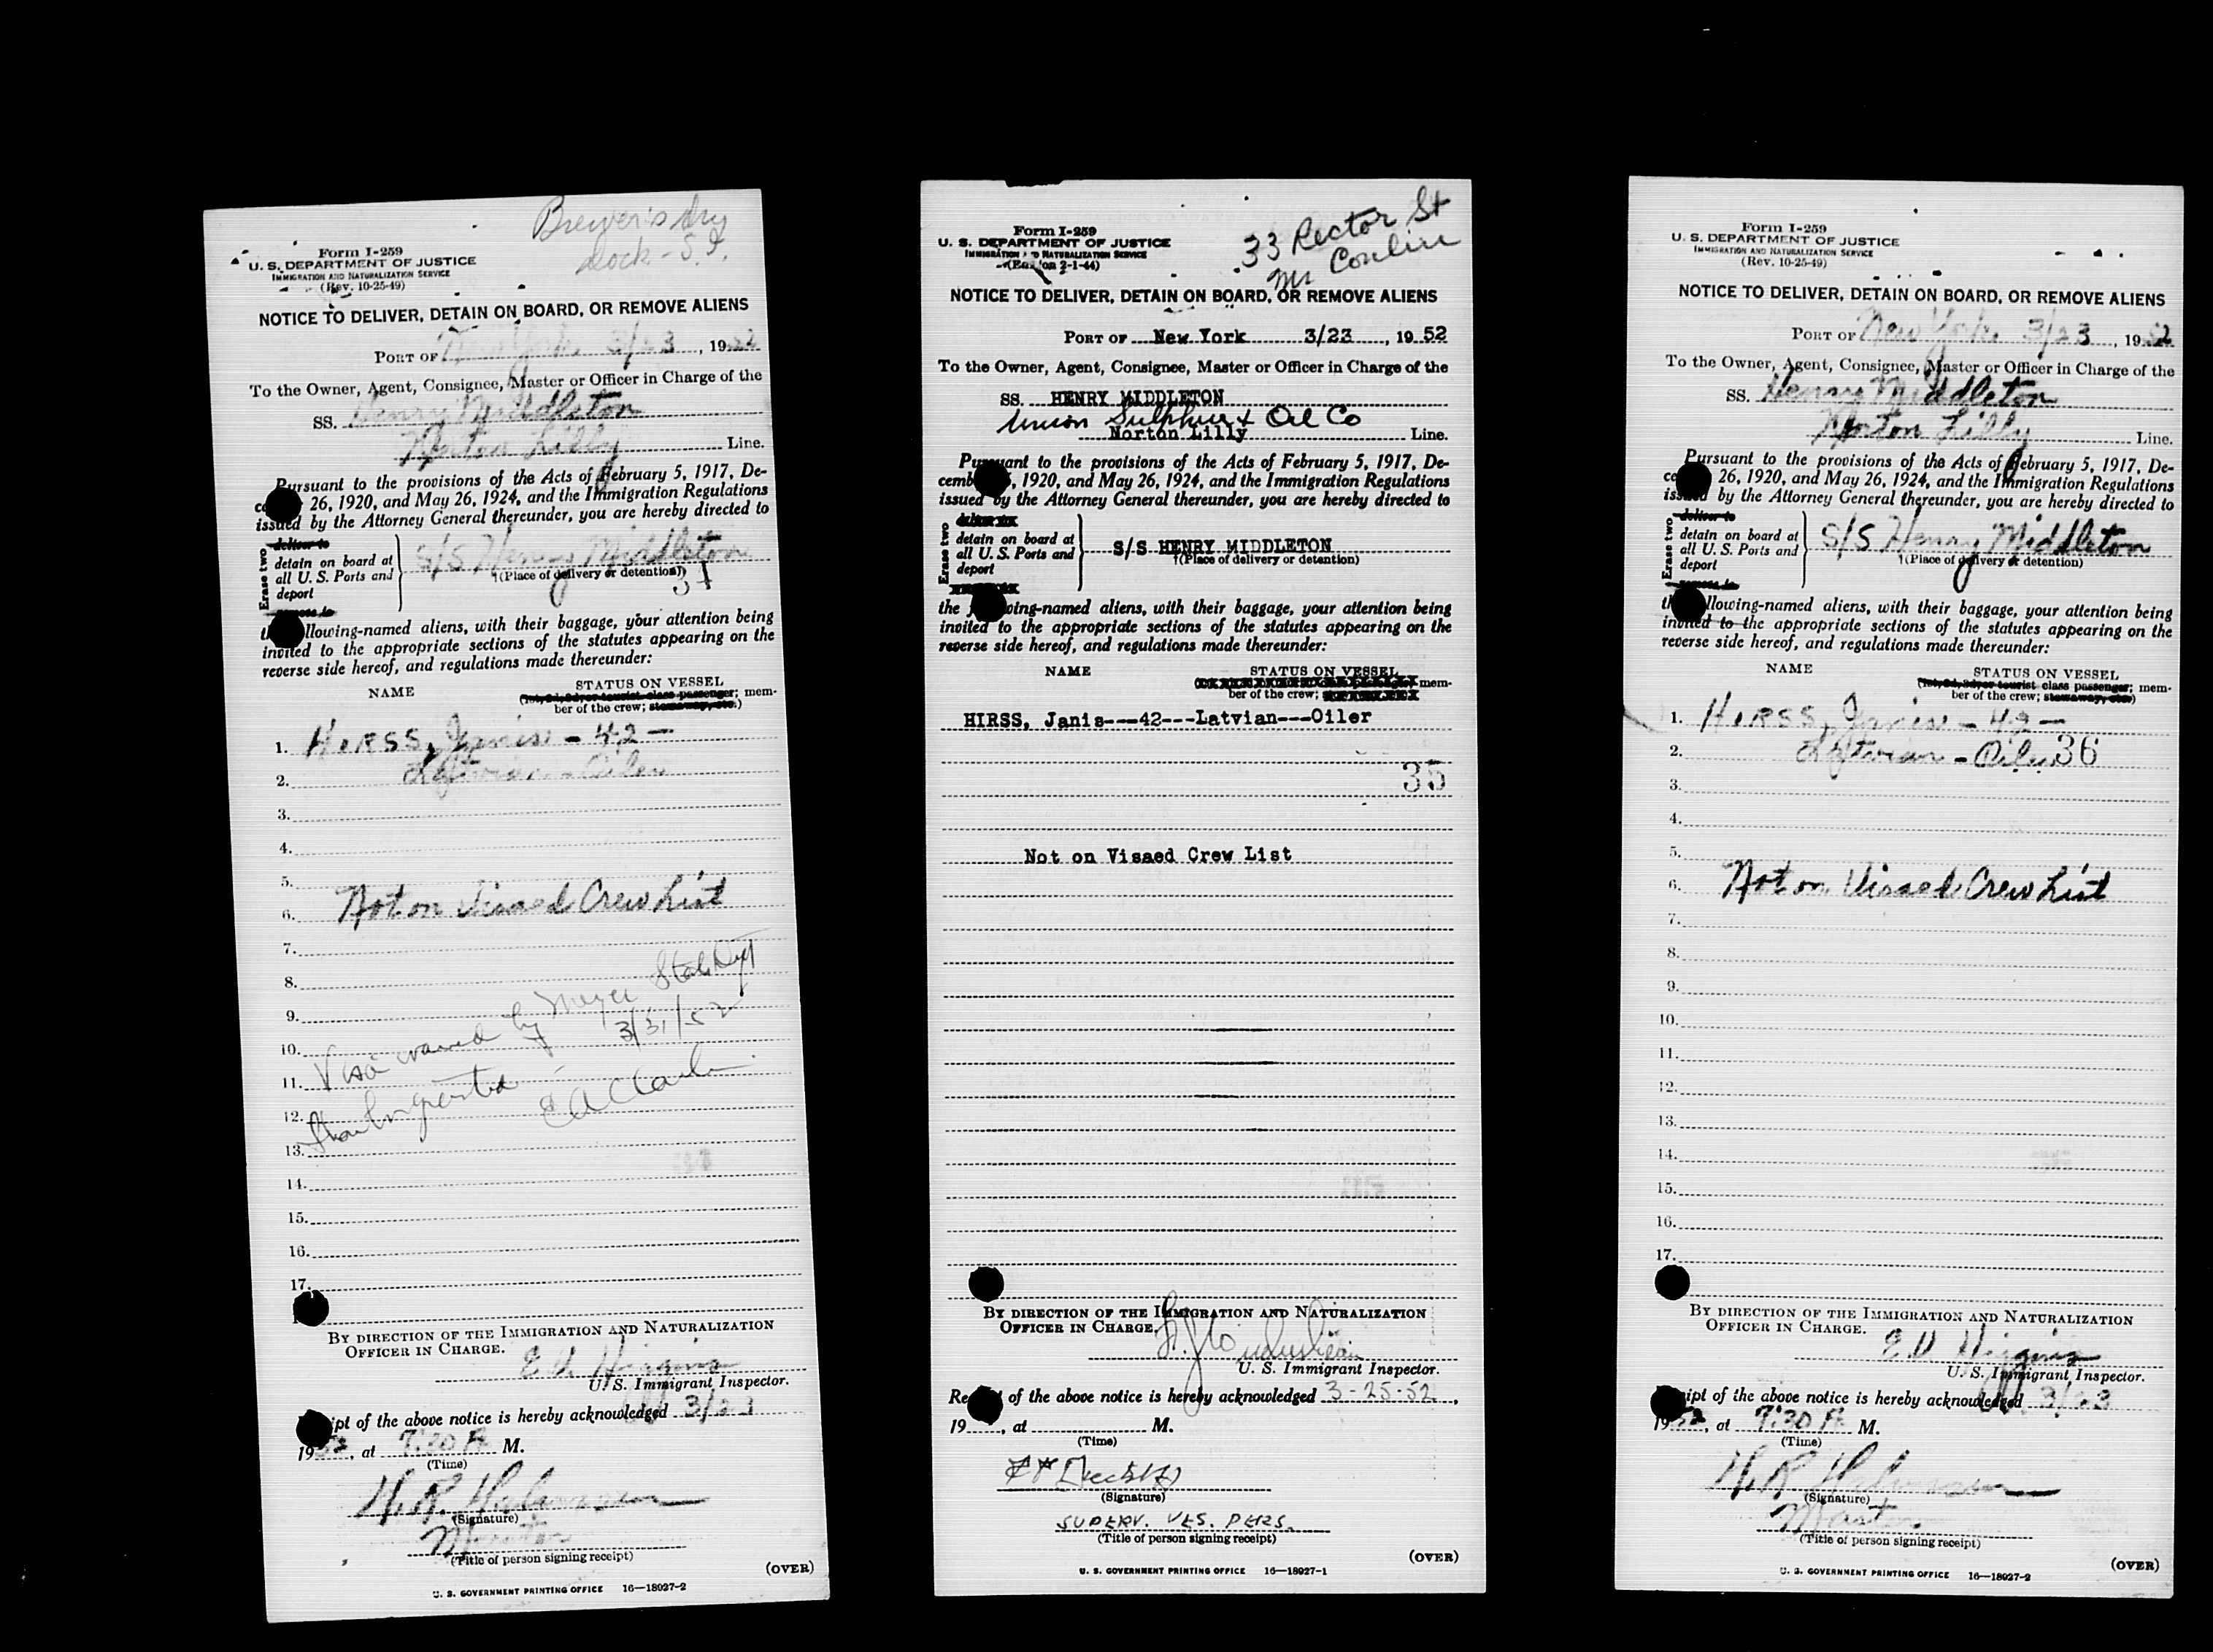 Brewer's Dry
Dock - S.I.
Form I-259
U. S. DEPARTMENT OF JUSTICE
IMMIGRATION AND NATURALIZATION SERVICE
(Rev. 10-25-49)
NOTICE TO DELIVER, DETAIN ON BOARD, OR REMOVE ALIENS
PORT OF New York 3/23, 1952
To the Owner, Agent, Consignee, Master or Officer in Charge of the
SS. Henry Middleton
Norton Lilly Line.
Pursuant to the provisions of the Acts of February 5, 1917, De-
26, 1920, and May 26, 1924, and the Immigration Regulations
issued by the Attorney General thereunder, you are hereby directed to
Erase two
deliver to
detain on board at
all U. S. Ports and
deport
remove to
S/S Henry Middleton
†(Place of delivery or detention)
34
llowing-named aliens, with their baggage, your attention being
invited to the appropriate sections of the statutes appearing on the
reverse side hereof, and regulations made thereunder:
NAME STATUS ON VESSEL
(1st, 2d, 3d, or tourist class passenger; mem-
ber of the crew; stowaway, etc.)
1. HIRSS, Janis - 42 -
2. Latvian - Oiler
3.
4.
5.
6. Not on Visaed Crew List
7.
8.
9.
10.
11.
12.
13.
14.
15.
16.
17.
Visa waived by Meyer State Dept
3/31/52
Shore lv granted
BY DIRECTION OF THE IMMIGRATION AND NATURALIZATION
OFFICER IN CHARGE.
E V Higgins
U. S. Immigrant Inspector.
ipt of the above notice is hereby acknowledged 3/23
1952, at 7:30 P. M.
(Time)
H. R.
(Signature)
Master
(Title of person signing receipt)
(OVER)
U. S. GOVERNMENT PRINTING OFFICE 16—18027-2
33 Rector St
Mr Conlin
Form I-259
U. S. DEPARTMENT OF JUSTICE
IMMIGRATION AND NATURALIZATION SERVICE
(Edition 2-1-44)
NOTICE TO DELIVER, DETAIN ON BOARD, OR REMOVE ALIENS
PORT OF New York 3/23, 19 52
To the Owner, Agent, Consignee, Master or Officer in Charge of the
SS. HENRY MIDDLETON
Union Sulphur & Oil Co
Norton Lilly Line.
Pursuant to the provisions of the Acts of February 5, 1917, De-
cemb , 1920, and May 26, 1924, and the Immigration Regulations
issued by the Attorney General thereunder, you are hereby directed to
Erase two
deliver to
detain on board at
all U. S. Ports and
deport
S/S HENRY MIDDLETON
†(Place of delivery or detention)
the wing-named aliens, with their baggage, your attention being
invited to the appropriate sections of the statutes appearing on the
reverse side hereof, and regulations made thereunder:
NAME STATUS ON VESSEL
mem-
ber of the crew;
HIRSS, Janis---42---Latvian---Oiler
35
Not on Visaed Crew List
BY DIRECTION OF THE IMMIGRATION AND NATURALIZATION
OFFICER IN CHARGE.
U. S. Immigrant Inspector.
Re t of the above notice is hereby acknowledged 3-25-52,
19 , at M.
(Time)
(Signature)
SUPERV. VES. PERS.
(Title of person signing receipt)
(OVER)
U. S. GOVERNMENT PRINTING OFFICE 16—18027-1
Form I-259
U. S. DEPARTMENT OF JUSTICE
IMMIGRATION AND NATURALIZATION SERVICE
(Rev. 10-25-49)
NOTICE TO DELIVER, DETAIN ON BOARD, OR REMOVE ALIENS
PORT OF New York 3/23, 1952
To the Owner, Agent, Consignee, Master or Officer in Charge of the
SS. Henry Middleton
Norton Lilly Line.
Pursuant to the provisions of the Acts of February 5, 1917, De-
26, 1920, and May 26, 1924, and the Immigration Regulations
issued by the Attorney General thereunder, you are hereby directed to
Erase two
deliver to
detain on board at
all U. S. Ports and
deport
remove to
S/S Henry Middleton
†(Place of delivery or detention)
llowing-named aliens, with their baggage, your attention being
invited to the appropriate sections of the statutes appearing on the
reverse side hereof, and regulations made thereunder:
NAME STATUS ON VESSEL
(1st, 2d, 3d, or tourist class passenger; mem-
ber of the crew; stowaway, etc.)
1. HIRSS, Janis - 42 -
2. Latvian - Oiler 36
3.
4.
5.
6. Not on Visaed Crew List
7.
8.
9.
10.
11.
12.
13.
14.
15.
16.
17.
BY DIRECTION OF THE IMMIGRATION AND NATURALIZATION
OFFICER IN CHARGE.
E V Higgins
U. S. Immigrant Inspector.
ipt of the above notice is hereby acknowledged 3/23
1952, at 7:30 P. M.
(Time)
H. R.
(Signature)
Master
(Title of person signing receipt)
(OVER)
U. S. GOVERNMENT PRINTING OFFICE 16—18027-2